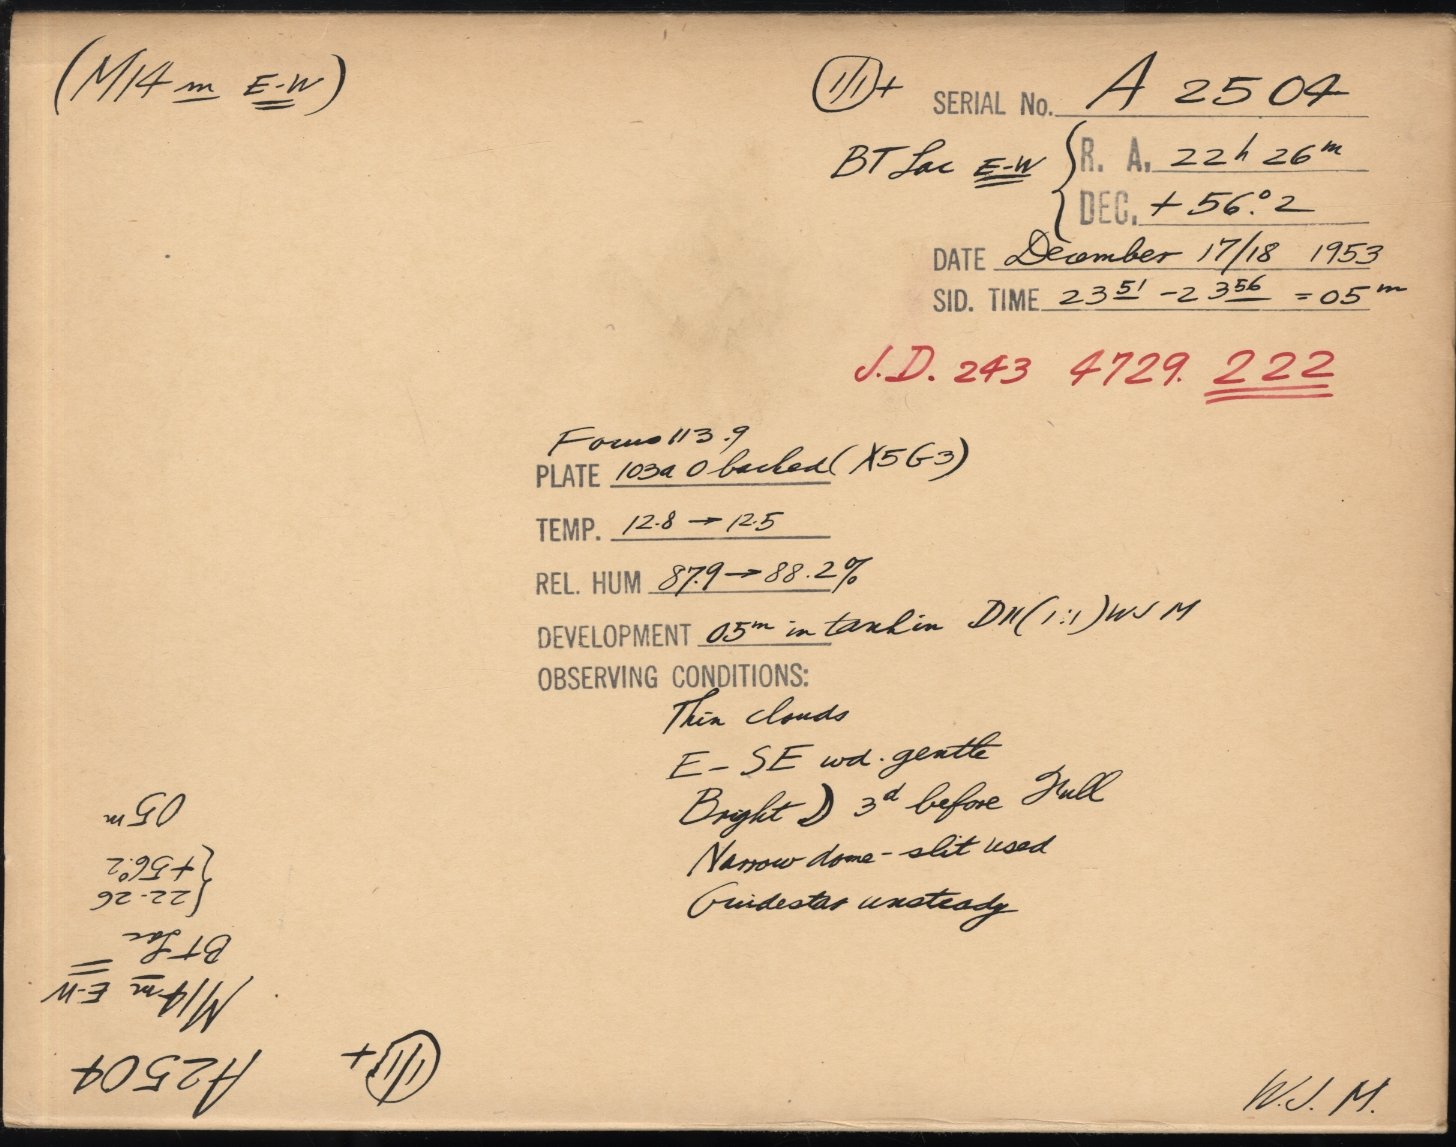 (M14 m E-W)
111+ SERIAL No. A 2504
BT Lac E-W { R. A. 22h 26m
DEC. +56.°2
DATE December 17/18 1953
SID. TIME 23 51 - 23 56 = 05m
J.D. 243 4729. 222
Focus 113.9
PLATE 103a O backed (X5G3)
TEMP. 12.8 → 12.5
REL. HUM 87.9 → 88.2%
DEVELOPMENT 05m in tank in D11 (1:1) WJM
OBSERVING CONDITIONS:
Thin clouds
E - SE wd. gentle
Bright ☽ 3d before Full
Narrow dome-slit used
Guidestar unsteady
W.J.M.
111+
A2504
M14 m E-W
BT Lac
{ 22-26
+56.°2
05m